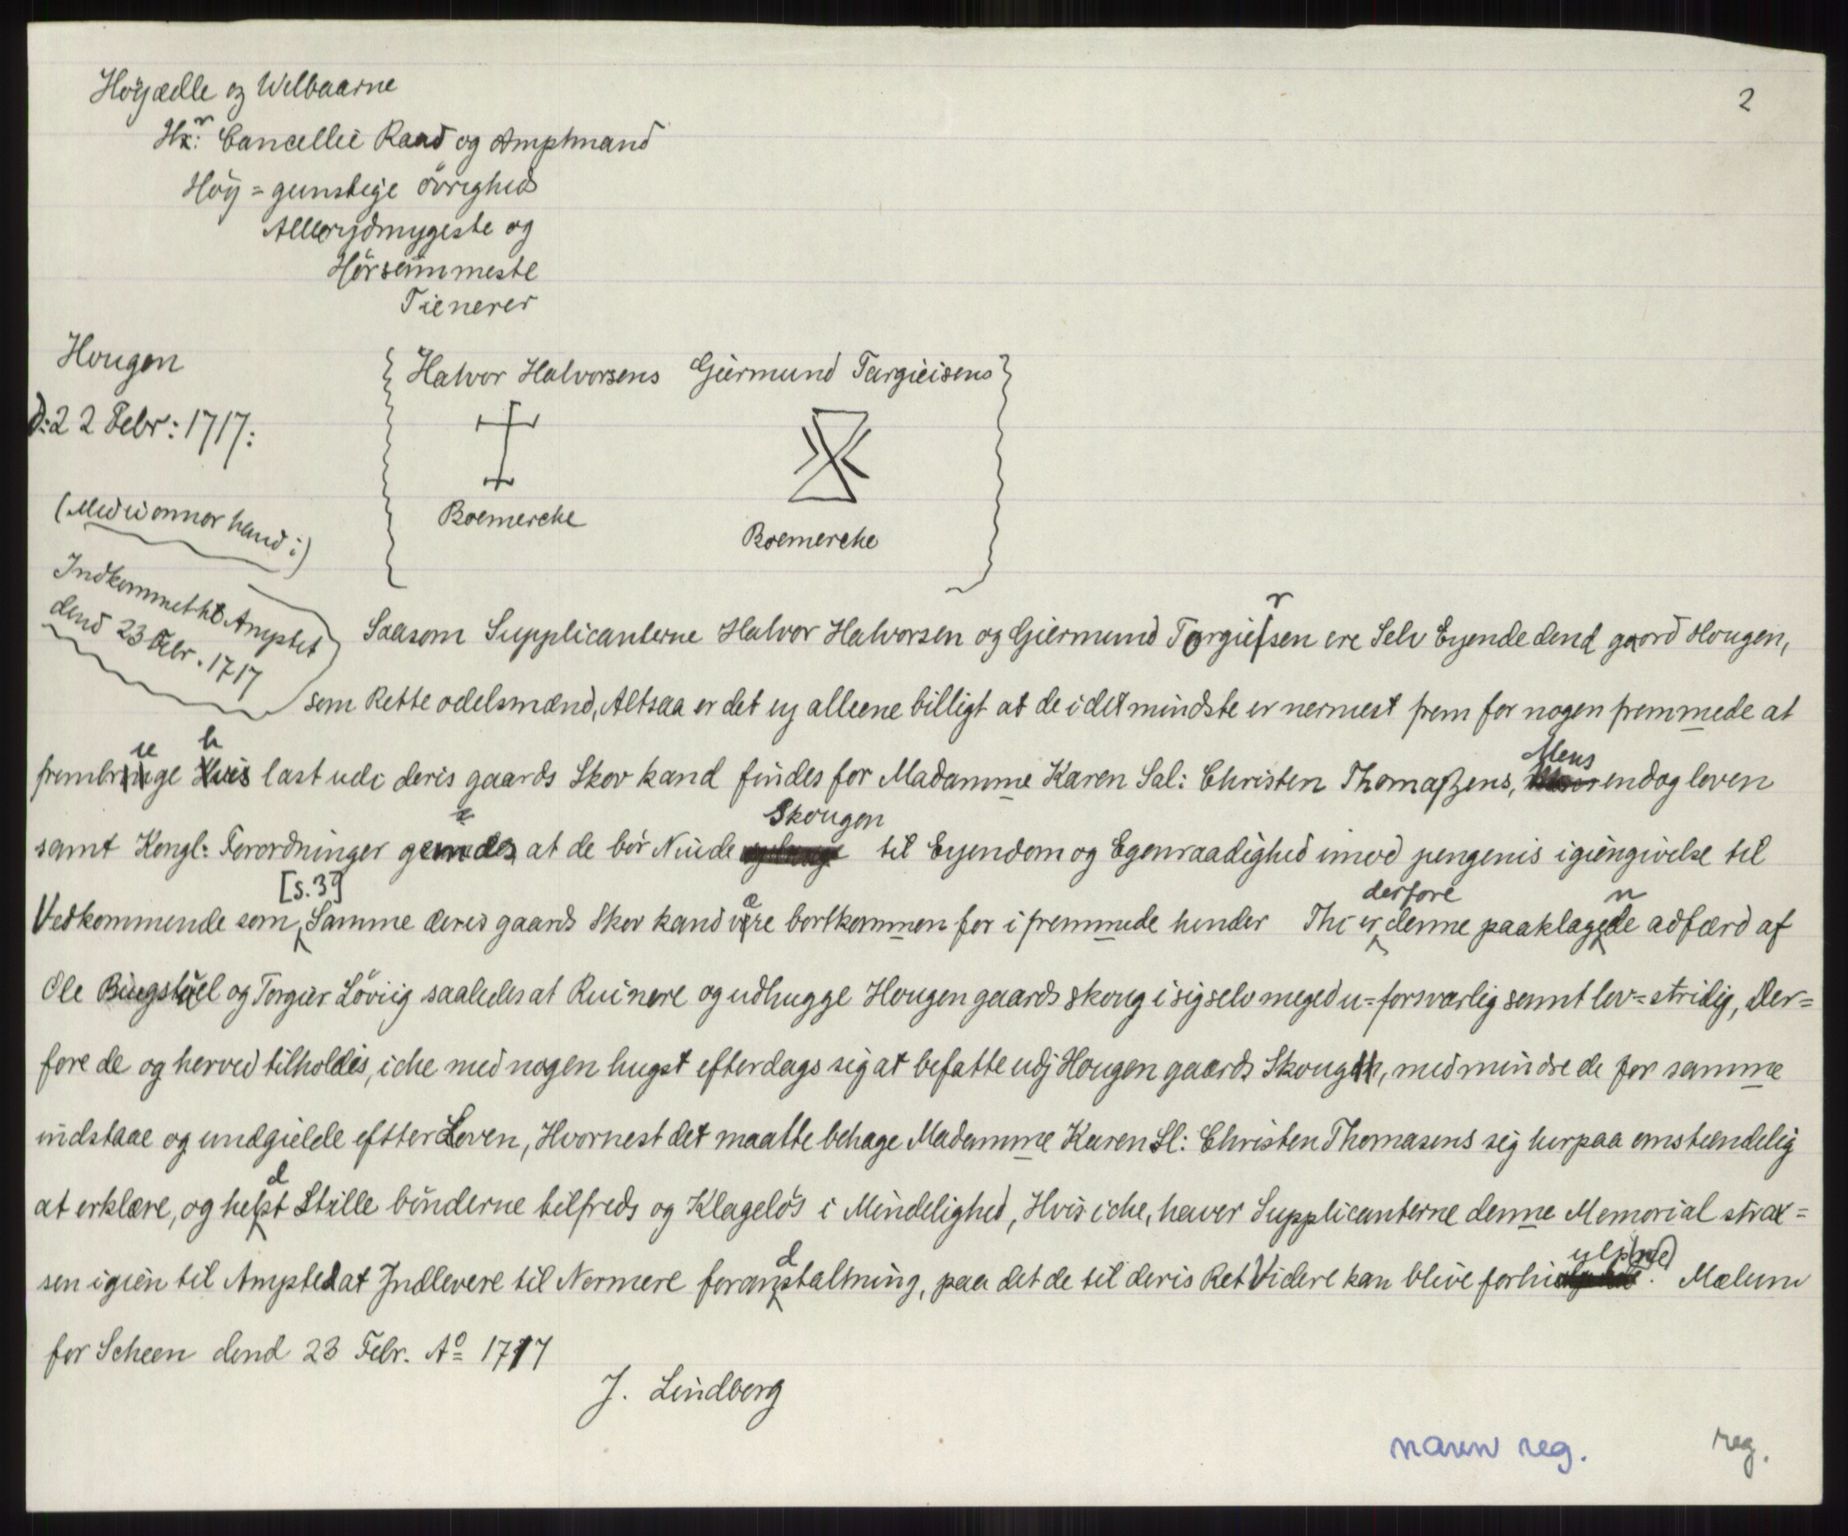 2
Höyædle og Welbaarne
Hr: Cancellie Raad og Amptmand
Höy = gunstige övrighed
Allerydmygeste og
Hörsummeste
Tienerer
Hougen
D: 22 Febr: 1717:
Halvor Halvorsens Giermund Targieisens
Boemercke
Boemercke
(Med en annor hand:)
Indkommet til Amptet
dend 23 Febr. 1717
Saasom Supplicanterne Halvor Halvorsen og Giermund Torgiersen ere Selv Eyende dend gaord Hougen,
som Rette odelsmænd, Altsaa er det ey alleene billigt at de i det mindste er nermest frem for nogen fremmede at
frembringe hvis last udi deris gaards Skov kand findes for Madamme Karen Sal: Christen Thomaßens, Mens endog loven
samt Kongl: Forordninger at de bör Niude Skougen til Eyendom og Egenraadighed imod pengenis igiengivelse til
Vedkommende som [s.3] Samme deris gaards Skov kand være bortkommen for i fremmede hender Thi er derfore denne paaklagende adfærd af
Ole Bingstüel og Torgier Löviig saaledes at Ruinere og udhugge Hougen gaards skoug i sig selv meged u=forsvarlig samt lov=stridig, Der=
fore de og herved tilholdes, iche med nogen hugst efterdags sig at befatte udj Hougen gaards Skoug, med mindre de for samme
indstaae og undgielde eftter Loven, Hvornest det maatte behage Madamme Karen Sl: Christen Thomasens sig herpaa omstændelig
at erklære, og helst Stille bönderne tilfreds og Klagelös i Mindelighed, Hvis iche, haver Supplicanterne denne Memorial strax=
sen igien til Ampted at Indlevere til Nermere foranstaltning, paa det de til deris Ret Videre kan blive Mælum
for Scheen dend 23 Febr. Aº 1717
J. Lindberg
navn reg.
reg.